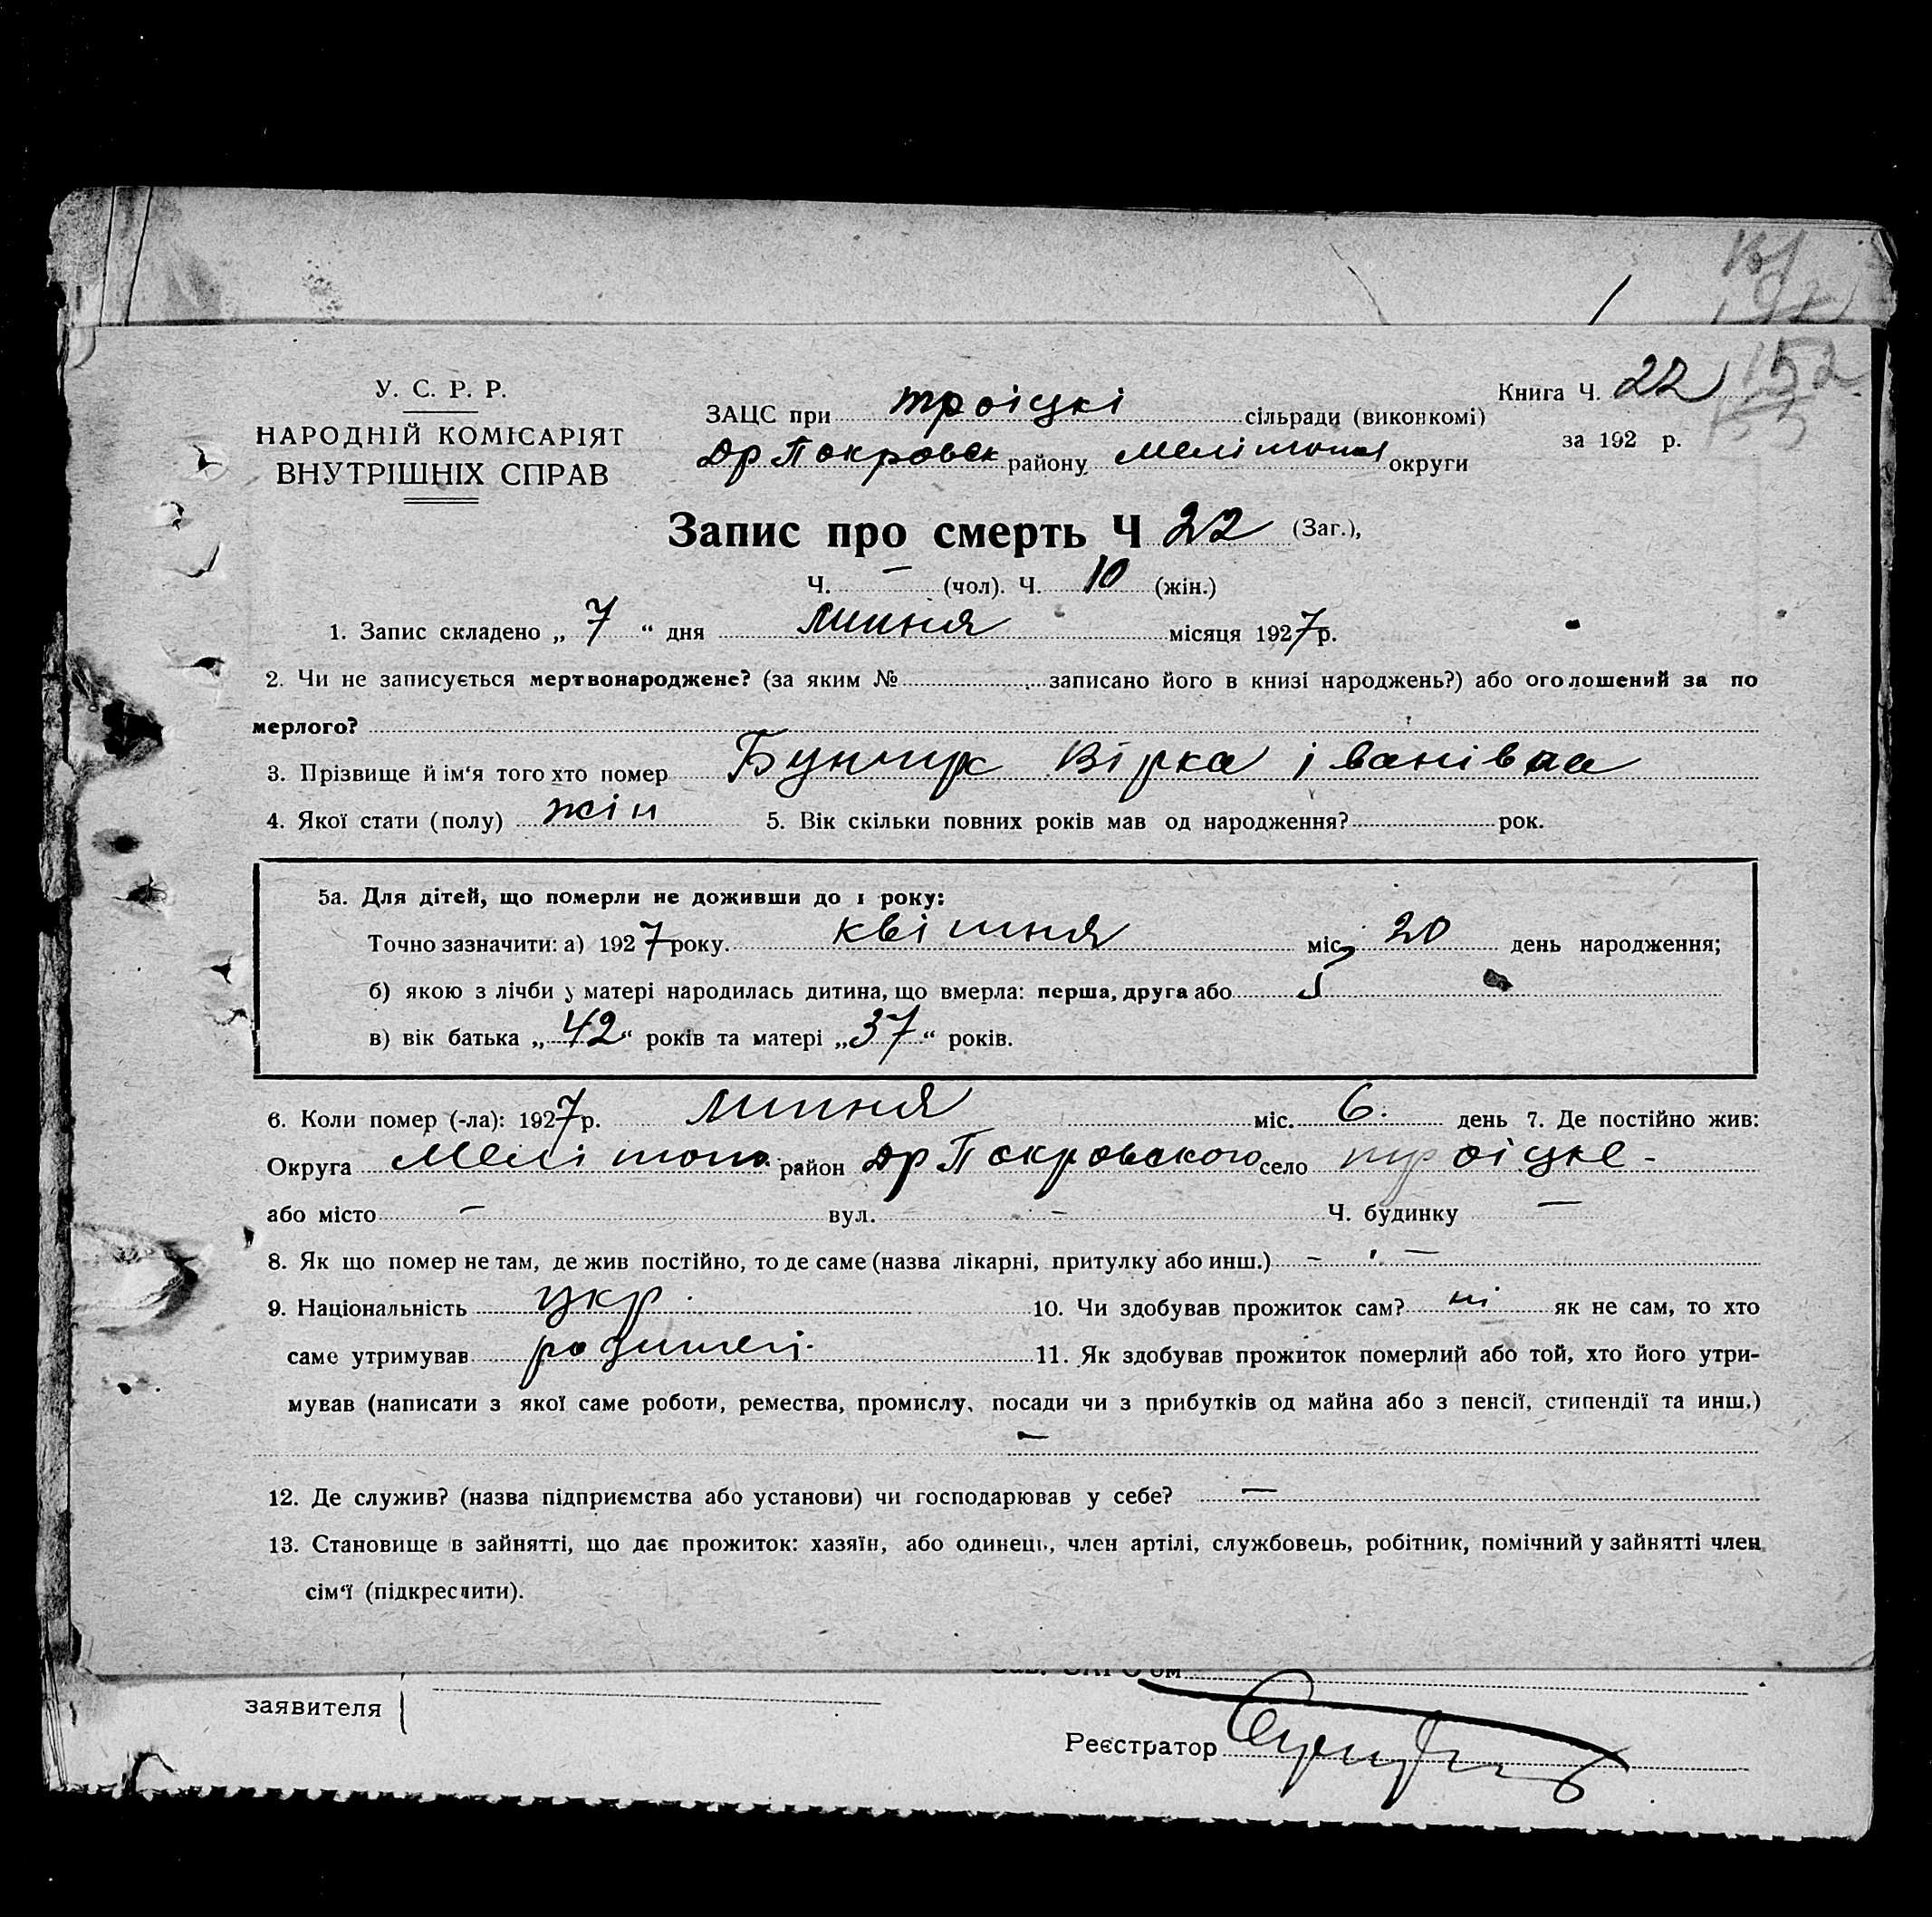 У. С. Р. Р.
НАРОДНІЙ КОМІСАРІЯТ
ВНУТРІШНІХ СПРАВ
ЗАЦС при троіцкі сільради (виконкомі)
Др Покровск району Мелітопол округи
Книга Ч. 22
за 192 р.
152
Запис про смерть Ч 22 (Заг.),
Ч. – (чол). Ч. 10 (жін.)
1. Запис складено „ 7 “ дня липня місяця 1927 р.
2. Чи не записується мертвонароджене? (за яким № записано його в книзі народжень?) або оголошений за по
мерлого?
3. Прізвище й ім‘я того хто помер Бунчук Вірка іванівна
4. Якої стати (полу) жін 5. Вік скільки повних років мав од народження? рок.
5а. Для дітей, що померли не доживши до 1 року:
Точно зазначити: а) 1927 року. квітня міс. 20 день народження;
б) якою з лічби у матері народилась дитина, що вмерла: перша, друга або 5
в) вік батька „42“ років та матері „37“ років.
6. Коли помер (-ла): 1927 р. липня міс. 6. день 7. Де постійно жив:
Округа Мелітоп. район Др Покровского село троіцке -
або місто – вул. – Ч. будинку –
8. Як що помер не там, де жив постійно, то де саме (назва лікарні, притулку або инш.) – –
9. Національність укр. 10. Чи здобував прожиток сам? ні як не сам, то хто
саме утримував родителі. 11. Як здобував прожиток померлий або той, хто його утри-
мував (написати з якої саме роботи, ремества, промислу, посади чи з прибутків од майна або з пенсії, стипендії та инш.)
–
12. Де служив? (назва підприємства або установи) чи господарював у себе? –
13. Становище в зайнятті, що дає прожиток: хазяїн, або одинець, член артілі, службовець, робітник, помічний у зайнятті член
сім‘ї (підкреслити).
заявителя
Реєстратор